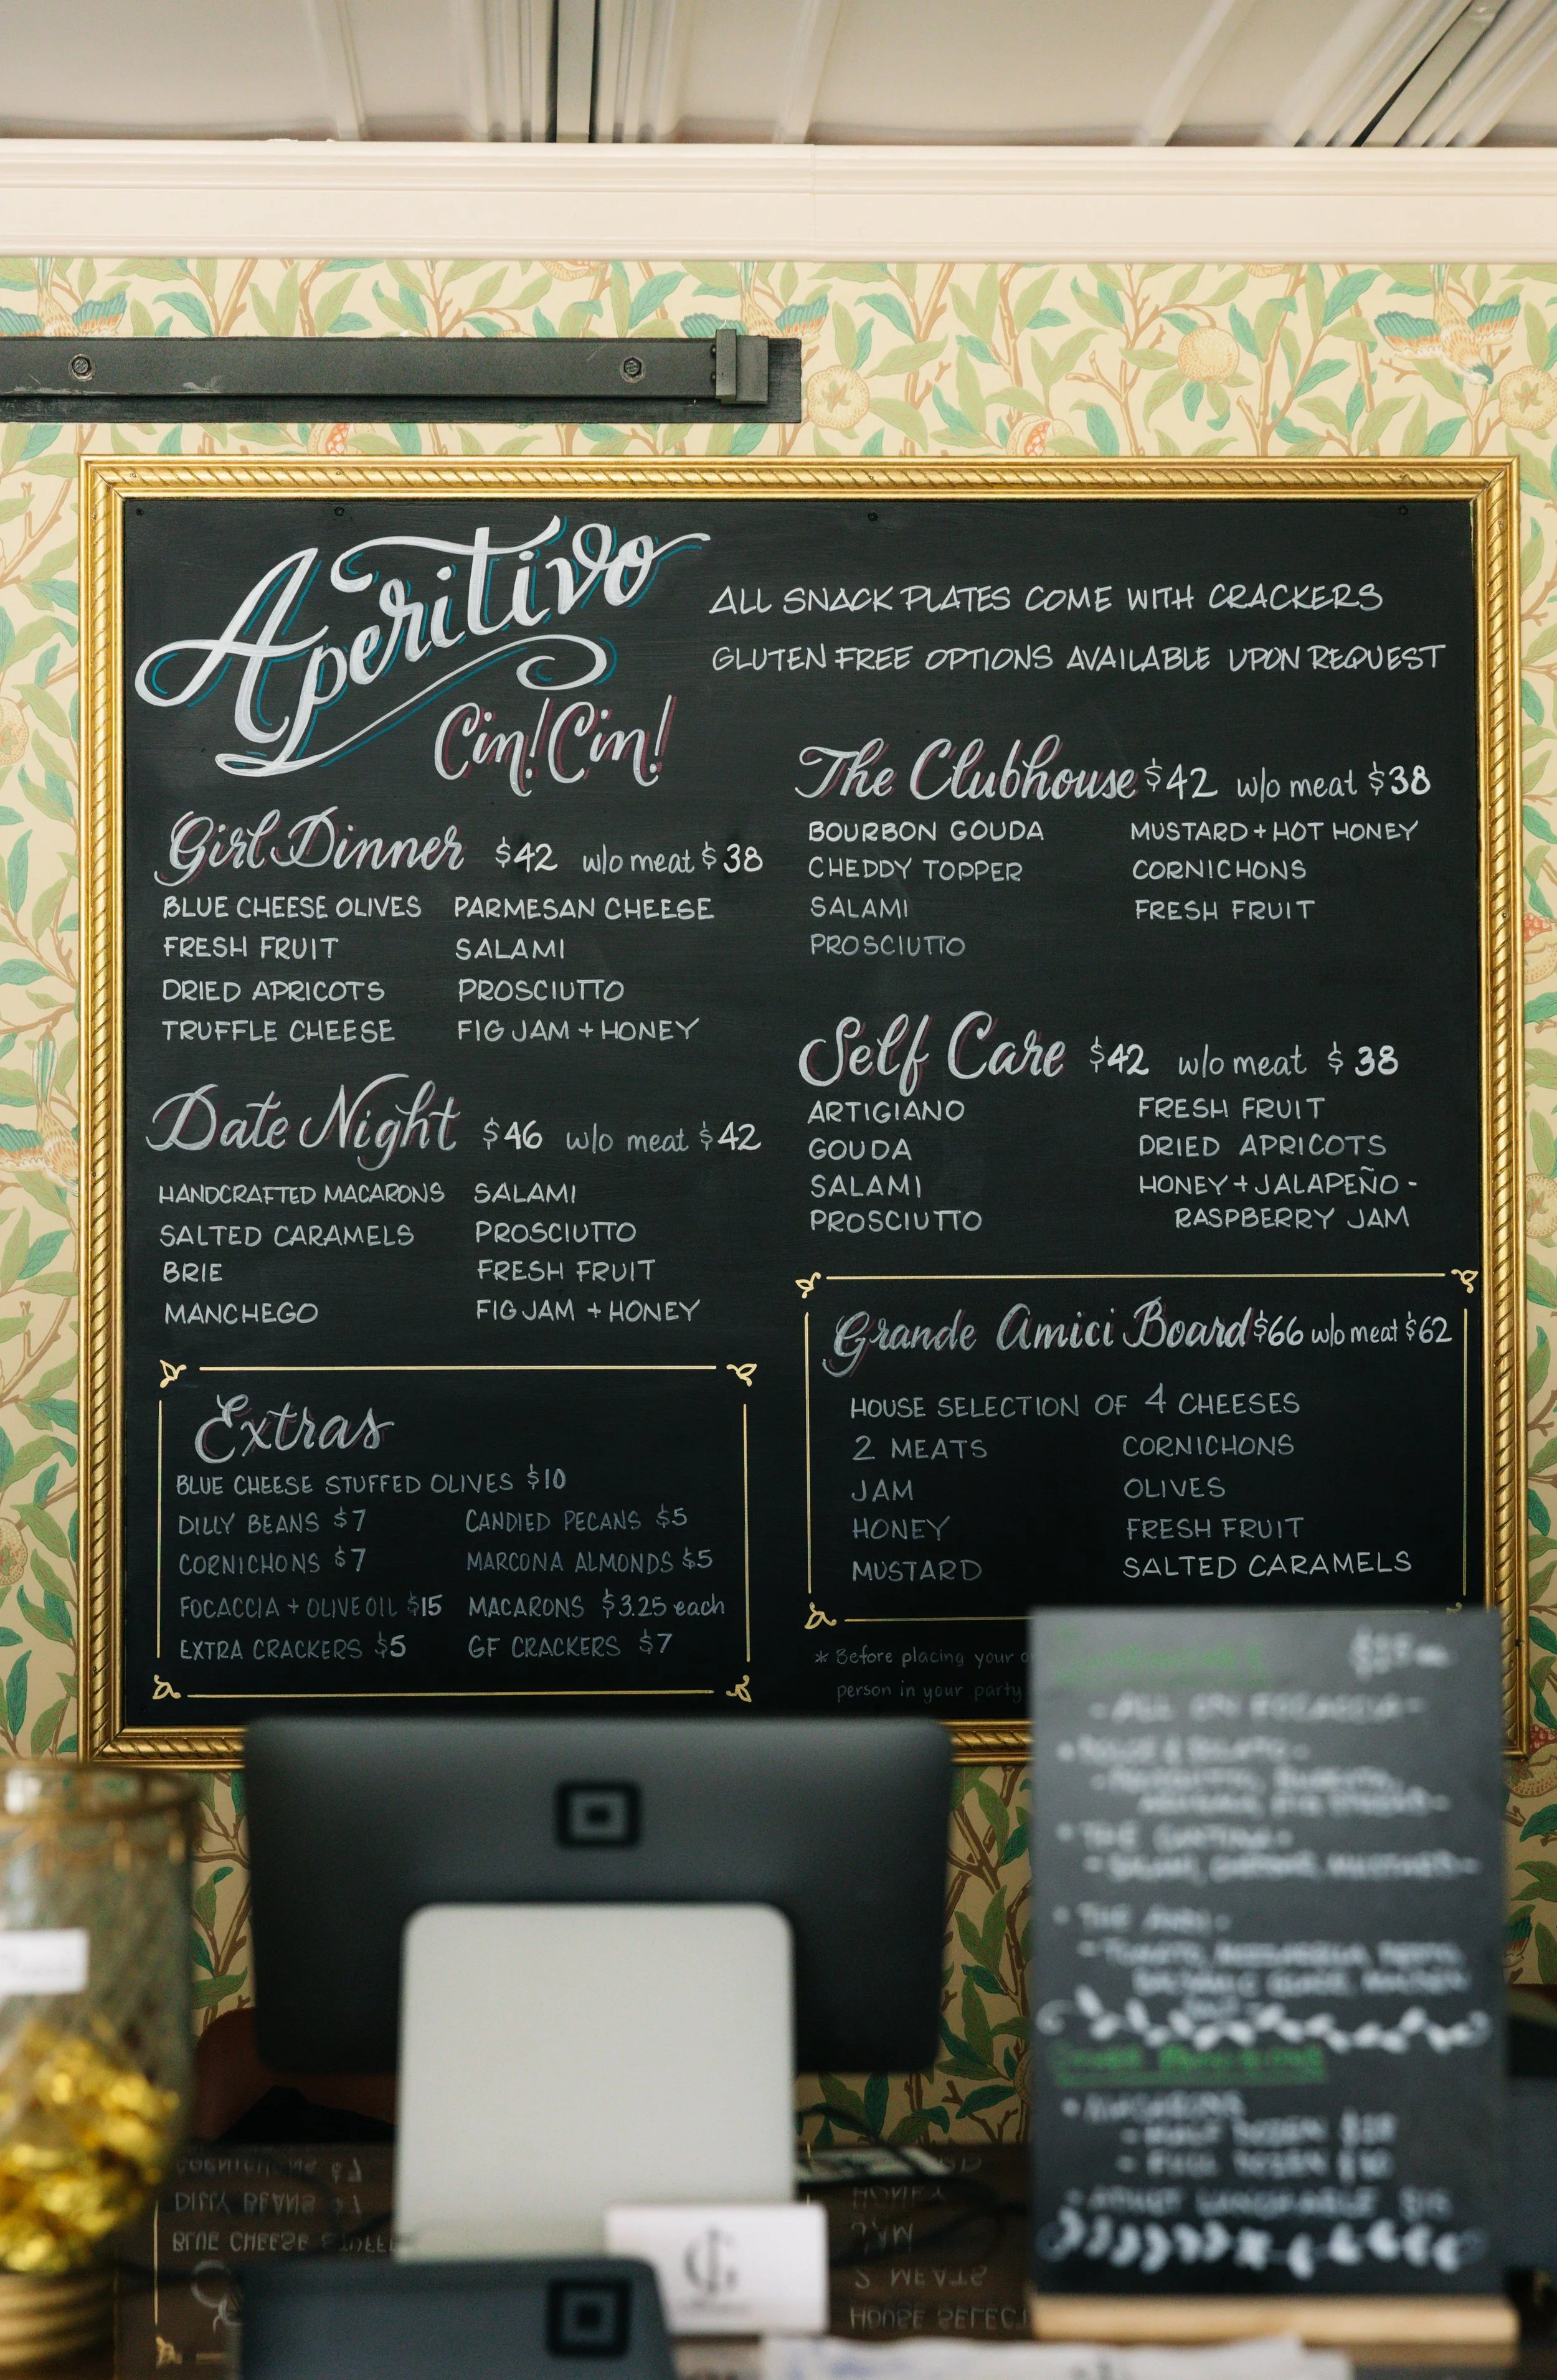 Aperitivo
Cin! Cin!
ALL SNACK PLATES COME WITH CRACKERS
GLUTEN FREE OPTIONS AVAILABLE UPON REQUEST
Girl Dinner $42 w/o meat $38
BLUE CHEESE OLIVES PARMESAN CHEESE
FRESH FRUIT SALAMI
DRIED APRICOTS PROSCIUTTO
TRUFFLE CHEESE FIG JAM + HONEY
Date Night $46 w/o meat $42
HANDCRAFTED MACARONS SALAMI
SALTED CARAMELS PROSCIUTTO
BRIE FRESH FRUIT
MANCHEGO FIG JAM + HONEY
Extras
BLUE CHEESE STUFFED OLIVES $10
DILLY BEANS $7 CANDIED PECANS $5
CORNICHONS $7 MARCONA ALMONDS $5
FOCACCIA + OLIVE OIL $15 MACARONS $3.25 each
EXTRA CRACKERS $5 GF CRACKERS $7
The Clubhouse $42 w/o meat $38
BOURBON GOUDA MUSTARD + HOT HONEY
CHEDDY TOPPER CORNICHONS
SALAMI FRESH FRUIT
PROSCIUTTO
Self Care $42 w/o meat $38
ARTIGIANO FRESH FRUIT
GOUDA DRIED APRICOTS
SALAMI HONEY + JALAPEÑO -
PROSCIUTTO RASPBERRY JAM
Grande Amici Board $66 w/o meat $62
HOUSE SELECTION OF 4 CHEESES
2 MEATS CORNICHONS
JAM OLIVES
HONEY FRESH FRUIT
MUSTARD SALTED CARAMELS
* Before placing your
person in your party
- ALL ON FOCACCIA -